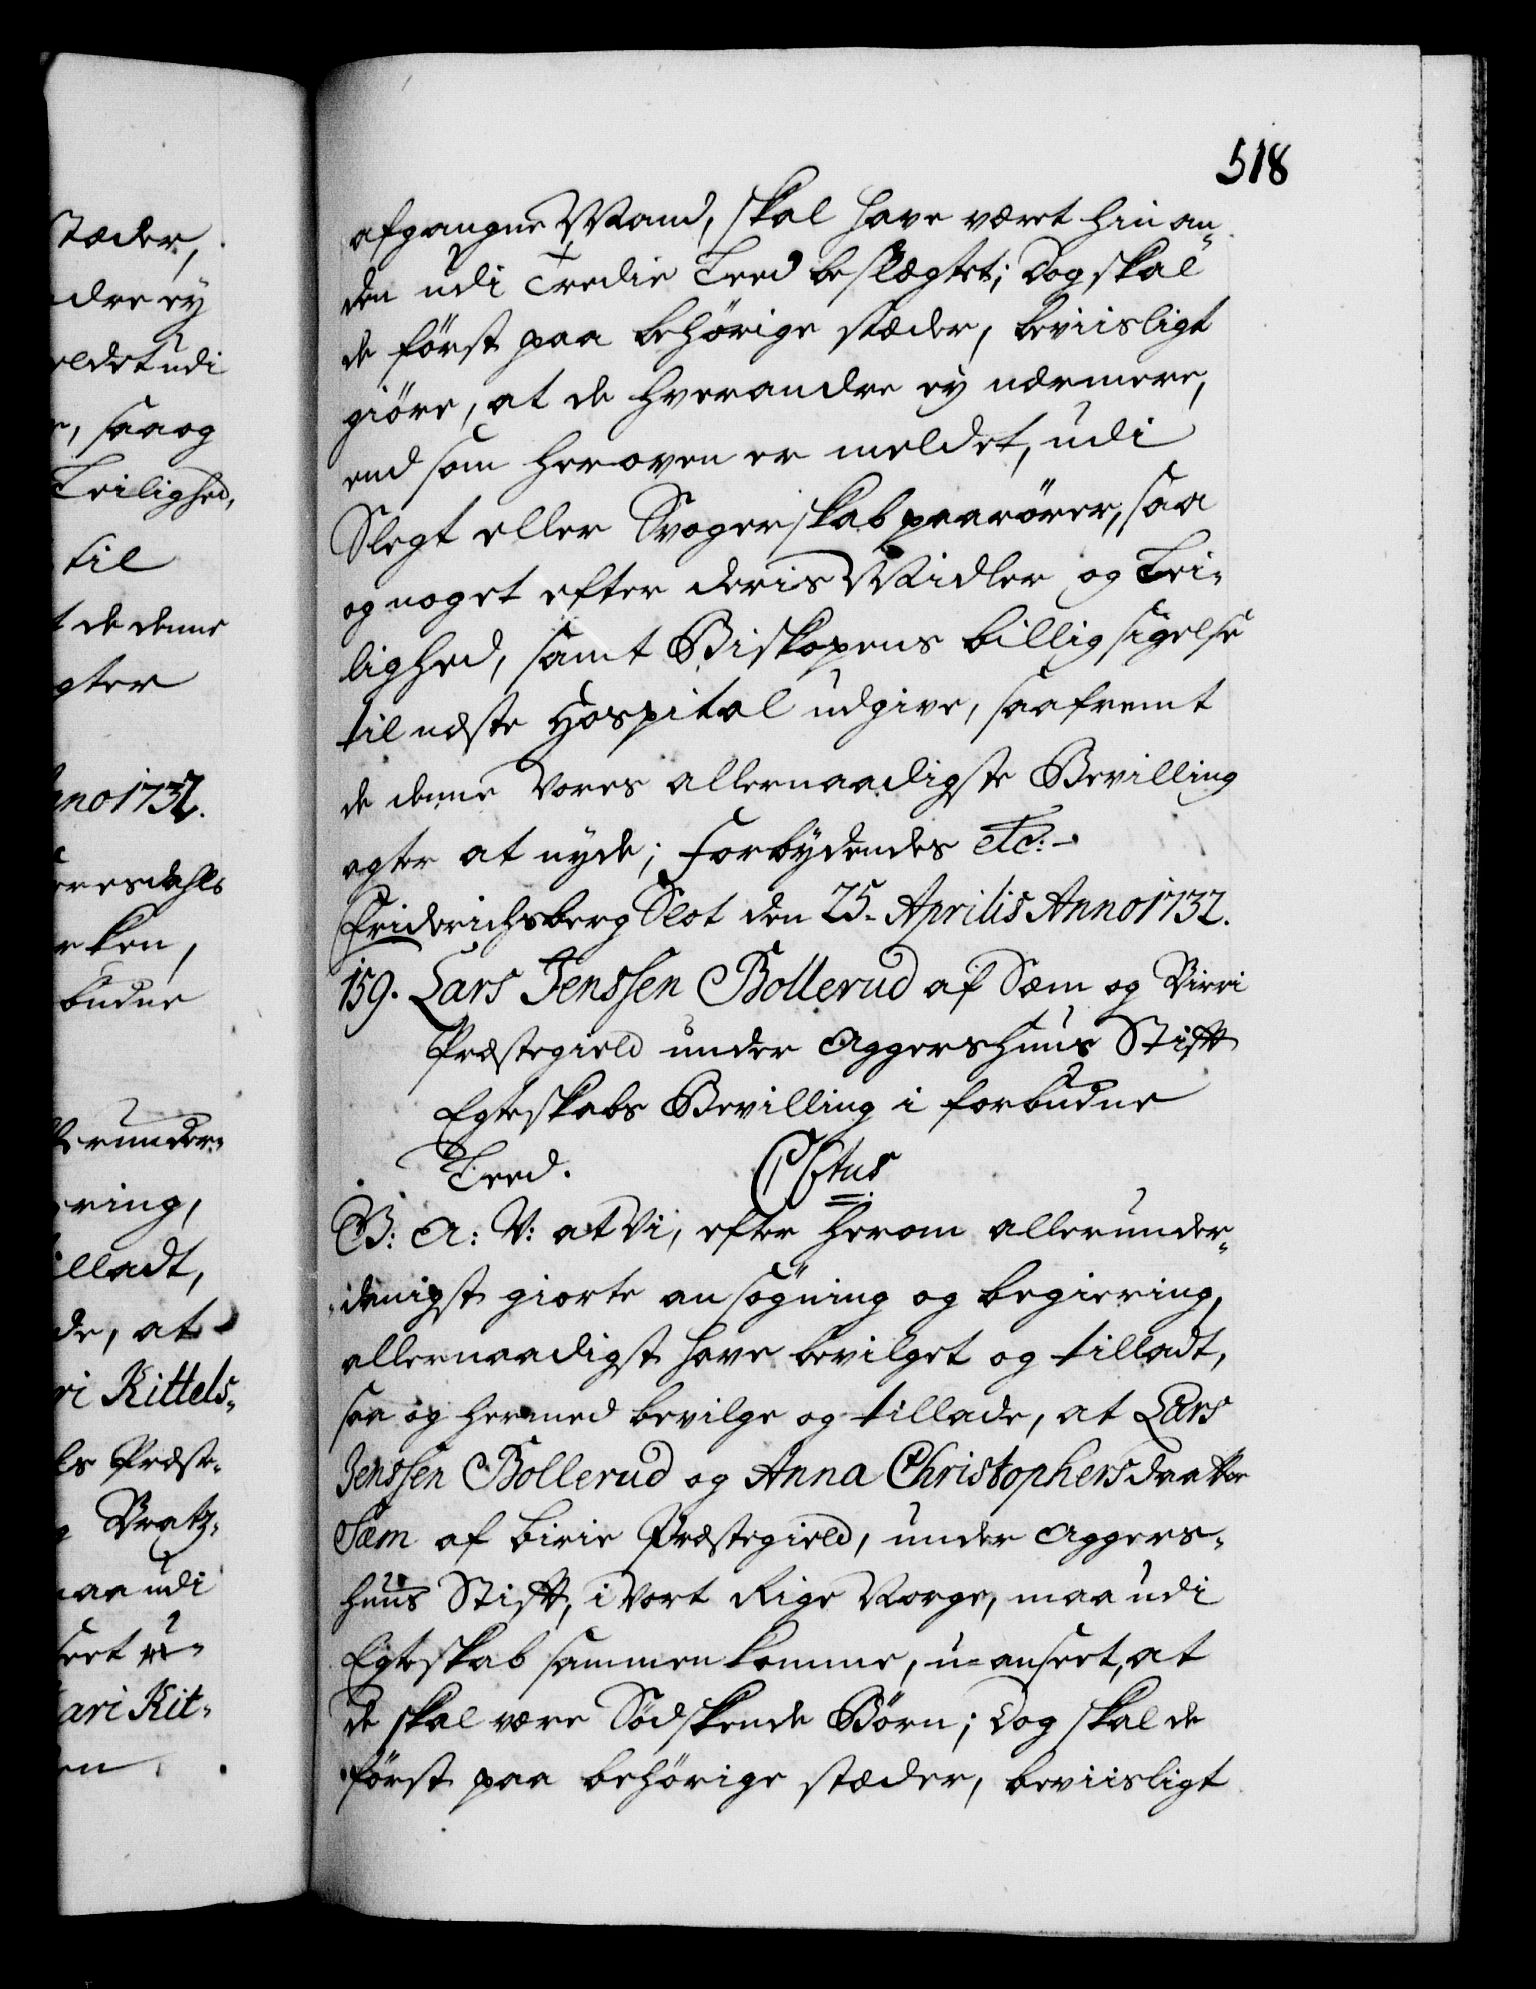 518
afgangne Mand, skal have været hin an„
den udi Tredie Leed beslægtet; Dog skal
de först paa behörige stæder, beviisligt
giöre, at de hverandre ey nærmere,
end som heroven er meldet, udi
Slegt eller Svogerskab paarörer, saa
og noget efter deris Midler og Lei„
lighed, samt Biskopens billigsigelse
til næste Hospital udgive, saafremt
de denne Vores allernaadigste Bevilling
agter at nyde; Forbydendes etc:
Friderichsberg Slot den 25. Aprilis Anno 1732.
159. Lars Jenssen Bollerud af Sæm og Virri
Præstegield under Aggershuus Stift
Egteskabs Bevilling i forbudne
Leed.
B: A: V: at Vi, efter herom allerunder„
danigst giorte ansögning og begiering,
allernaadigst have bevilget og tilladt,
saa og hermed bevilge og tillade, at Lars
Jenssen Bollerud og Anna Christophersdaatter
Sæm af Birie Præstegield, under Aggers„
huus Stift, i Vort Rige Norge, maa udi
Egteskab sammenkomme, u-anseet, at
de skal være Södskende Börn; Dog skal de
först paa behörige stæder, beviisligt
stæder,
dre ey
eldet udi
saa og
Leilighed,
til
de denne
gter
nno 1732.
resdahls
rken,
budne
runder„
ring,
illadt,
de, at
ri Kittels„
Præste„
Vratz„
aa udi
seet u„
ari Kit„